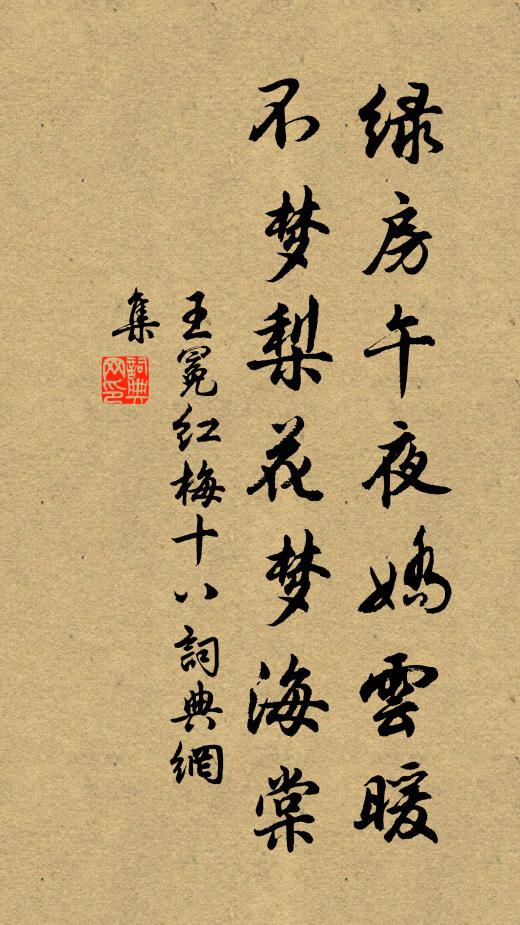 绿房午夜嬌雲暖
不梦梨花梦海棠
王冕红梅十八詞典網
集
詞典
网印